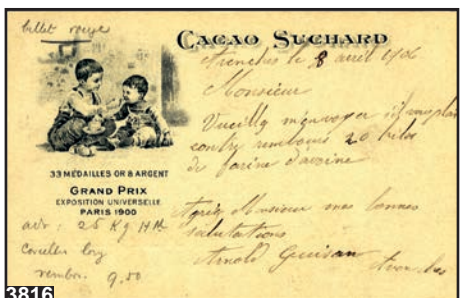 billet rouge
CACAO SUCHARD
Avenches le 8 avril 1906
Monsieur
Veuillez m'envoyer s'il vous plait
contre rembours 20 kilos
de farine d'avoine
33 MEDAILLES OR & ARGENT
GRAND PRIX
EXPOSITION UNIVERSELLE
PARIS 1900
Agréez Monsieur mes bonnes
salutations
Arnold Guisan
Avenches
adr : 25 Kg
rembor. 9.50
3816